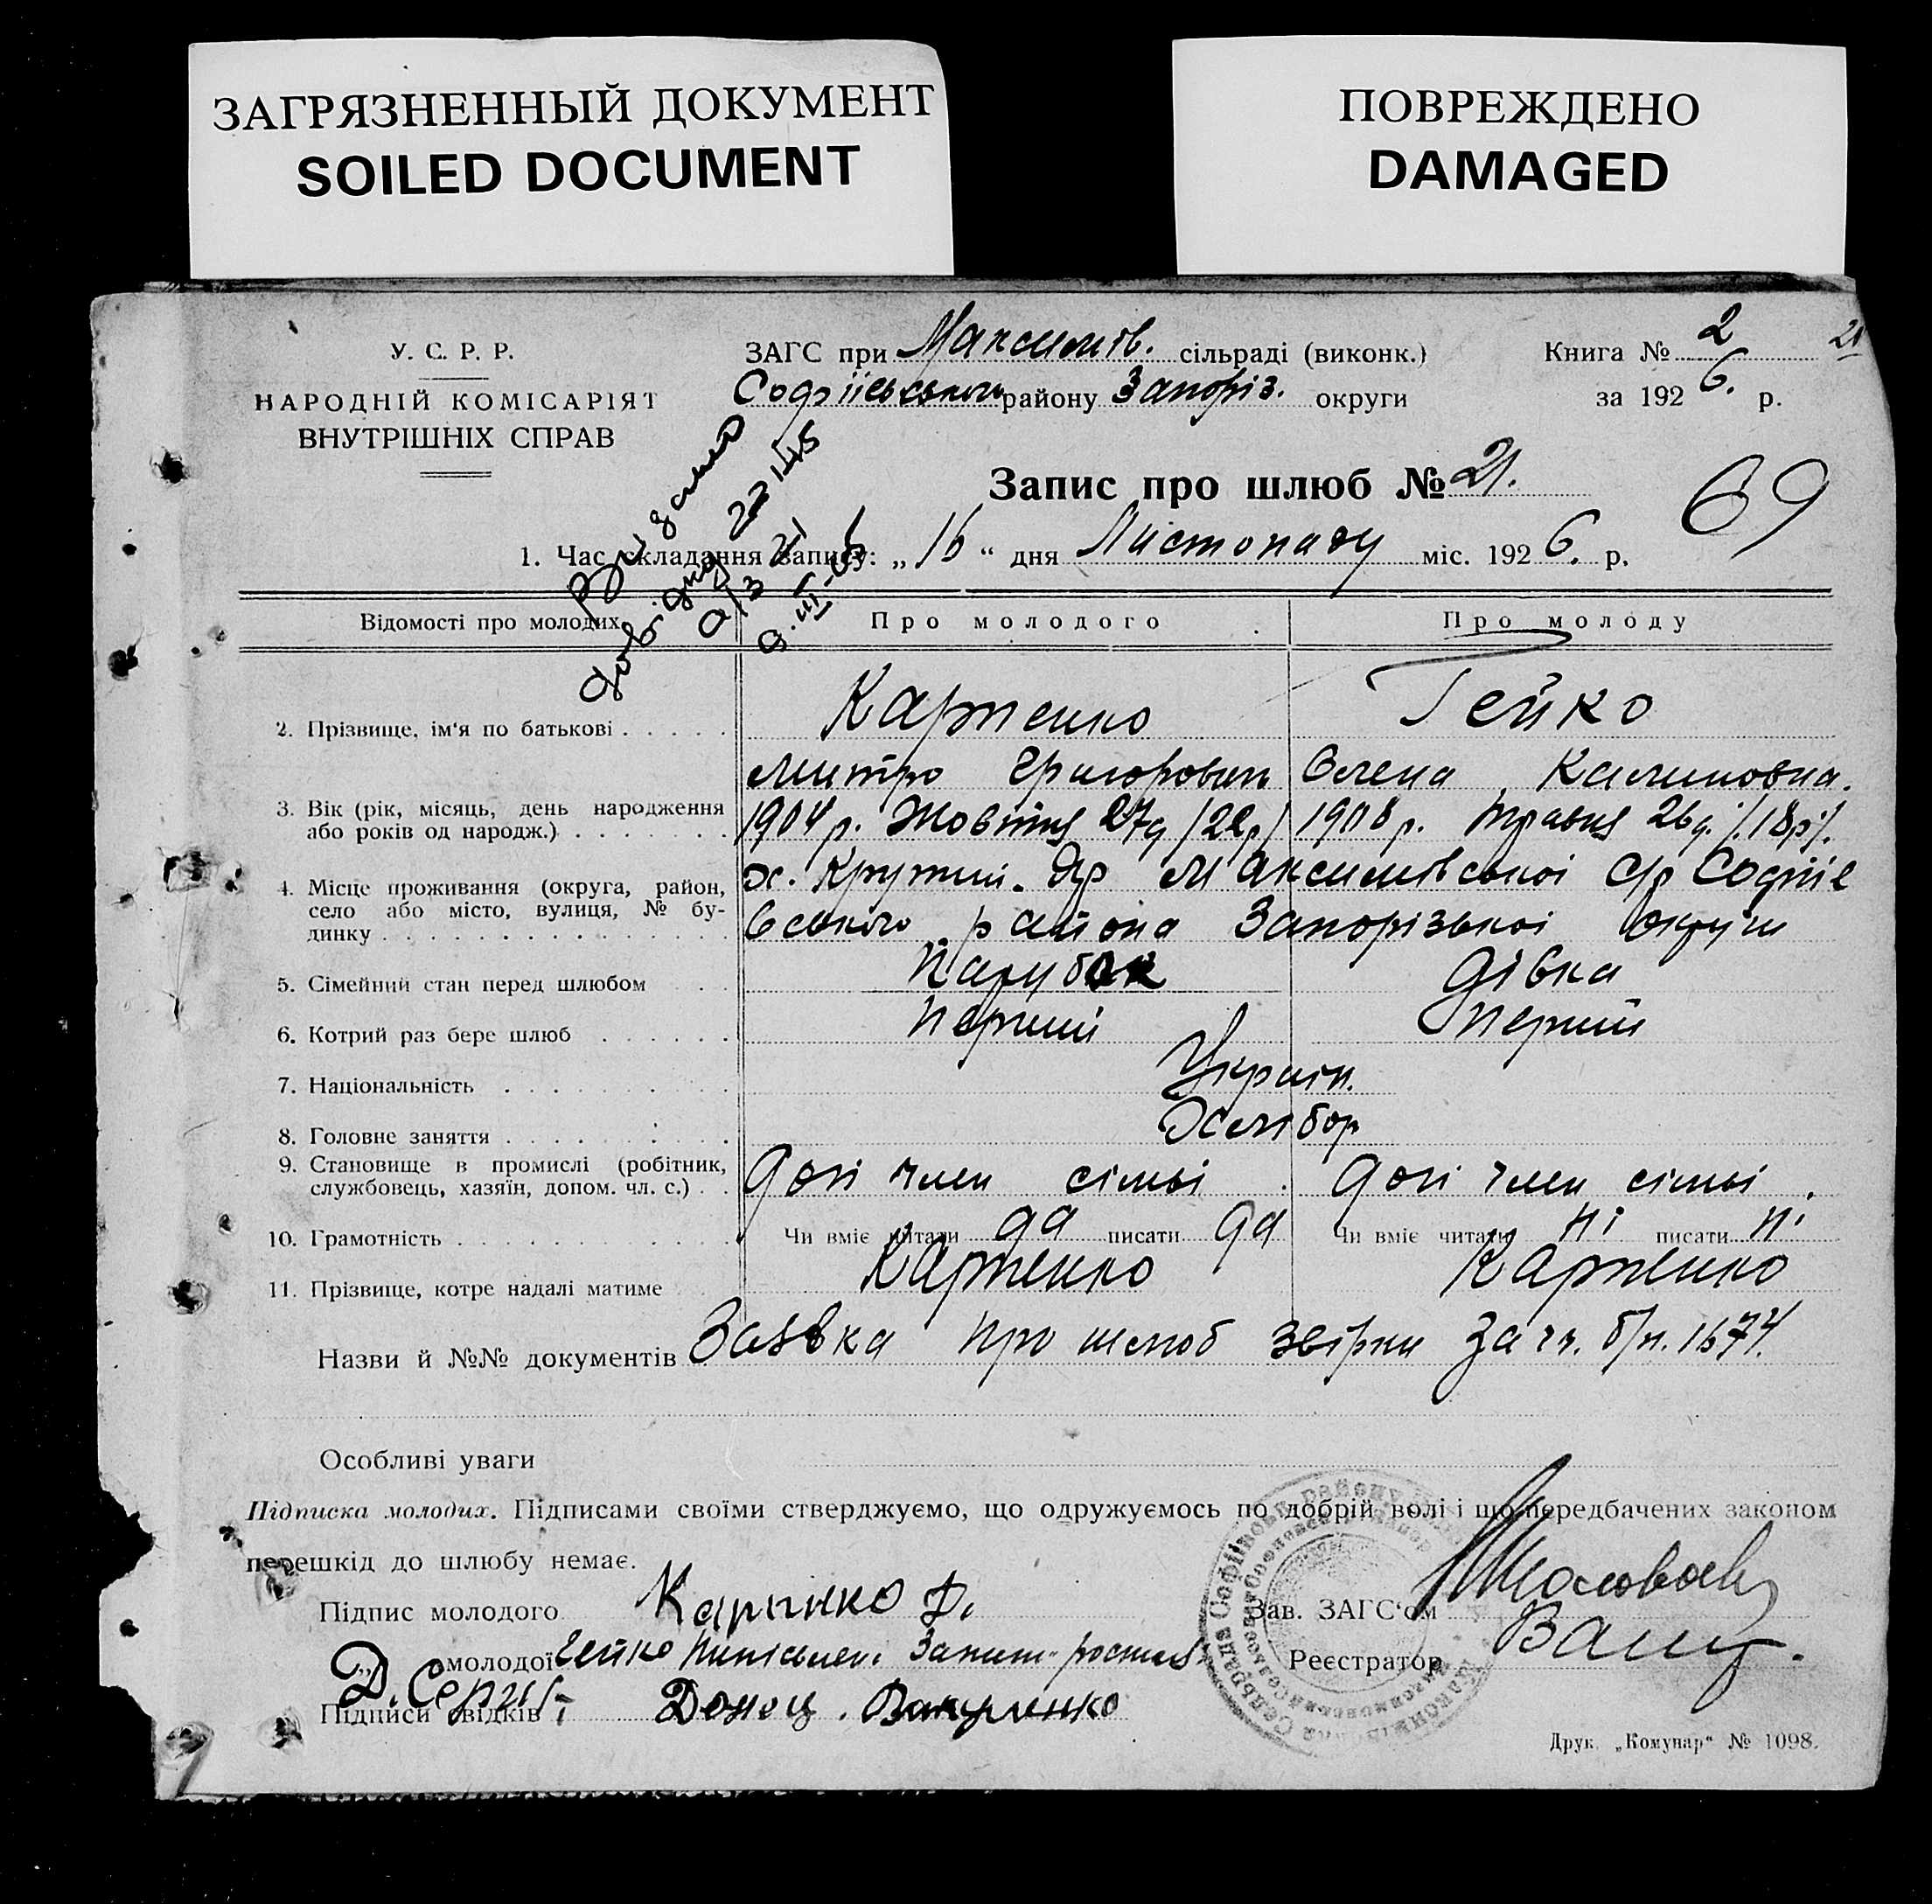 ЗАГРЯЗНЕННЫЙ ДОКУМЕНТ
SOILED DOCUMENT
ПОВРЕЖДЕНО
DAMAGED
У. С. Р. Р.
НАРОДНІЙ КОМІСАРІЯТ
ВНУТРІШНІХ СПРАВ
ЗАГС при Максимів. сільраді (виконк.)
Софіївського району Запоріз. округи
Книга № 2
21
за 1926. р.
Запис про шлюб № 21.
69
1. Час складання запису: „16“ дня Листопаду міс. 1926. р.
Відомості про молодих
Про молодого
Про молоду
2. Прізвище, ім'я по батькові
Карпенко
Гейко
Митро Григорович
Олена Калиновна.
3. Вік (рік, місяць, день народження
або років од народж.)
1904 р. Жовтня 27д /22р/
1908 р. травня 26д. /.18р/.
4. Місце проживання (округа, район,
село або місто, вулиця, № бу-
динку
х. Крутий. Яр Максимівської С/р Софіїе
вського района Запорізької Округи
5. Сімейний стан перед шлюбом
Парубок
дівка
6. Котрий раз бере шлюб
перший
перший
7. Національність
Україн.
8. Головне заняття
Хлібор
9. Становище в промислі (робітник,
службовець, хазяїн, допом. чл. с.)
доп член сімьі
доп член сімьі
10. Грамотність
Чи вміє читати да писати да
Чи вміє читати ні писати ні
11. Прізвище, котре надалі матиме
Карпенко
Карпенко
Назви й №№ документів Заявка про шлюб
Особливі уваги
Підписка молодих. Підписами своїми стверджуємо, що одружуємось по добрій волі і що передбачених законом
перешкід до шлюбу немає.
Підпис молодого Карпнко Д.
„ молодої Гейко
Підписи свідків Донец. Вакуленко
Зав. ЗАГС'ом
Реєстратор
Друк. „Комунар“ № 1098.